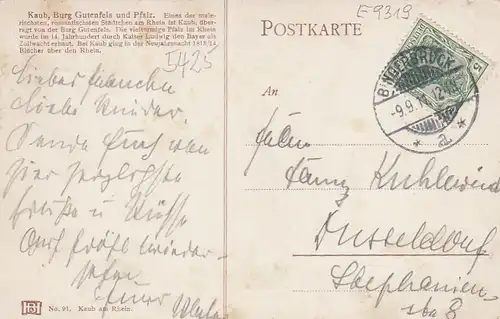 Kaub, Burg Gutenfels und Pfalz. Eines der male-
rischsten, romantischesten Städtchen am Rhein ist Kaub, über-
ragt von der Burg Gutenfels. Die vieltürmige Pfalz im Rhein
wurde im 14. Jahrhundert durch Kaiser Ludwig den Bayer als
Zollwacht erbaut. Bei Kaub ging in der Neujahrsnacht 1813/14
Blücher über den Rhein.
5425
Liebes
Liebe Kinder.
Sende Euch von
hier herzlichste
Grüße u Küsse
Auf frohes Wieder-
sehen
Euer
No. 91. Kaub am Rhein.
E 9319
POSTKARTE
5
BINGERBRÜCK
-9.9.
* a *
An
Familie
Franz Kuhlewind
Düsseldorf
Stephanien-
str 8